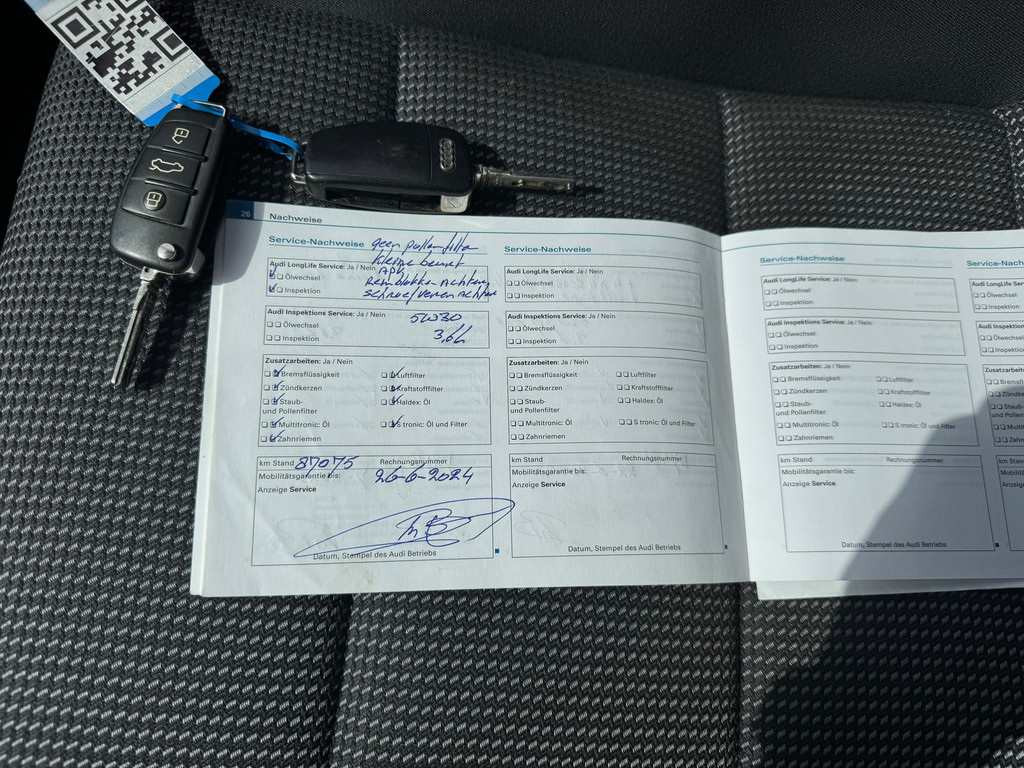 26 Nachweise
Service-Nachweise geen pollenfilter
Kleine beurt
Audi LongLife Service: Ja / Nein APK
Ölwechsel Remblokken Achter,
Inspektion Schroefveren Achter
Audi Inspektions Service: Ja / Nein 5W30
Ölwechsel
Inspektion 3,6L
Zusatzarbeiten: Ja / Nein
Bremsflüssigkeit Luftfilter
Zündkerzen Kraftstofffilter
Staub- Haldex: Öl
und Pollenfilter
Multitronic: Öl S tronic: Öl und Filter
Zahnriemen
km Stand 87075 Rechnungsnummer
Mobilitätsgarantie bis: 26-6-2024
Anzeige Service
Datum, Stempel des Audi Betriebs
Service-Nachweise
Audi LongLife Service: Ja / Nein
Ölwechsel
Inspektion
Audi Inspektions Service: Ja / Nein
Ölwechsel
Inspektion
Zusatzarbeiten: Ja / Nein
Bremsflüssigkeit Luftfilter
Zündkerzen Kraftstofffilter
Staub- Haldex: Öl
und Pollenfilter
Multitronic: Öl S tronic: Öl und Filter
Zahnriemen
km Stand Rechnungsnummer
Mobilitätsgarantie bis:
Anzeige Service
Datum, Stempel des Audi Betriebs
Service-Nachweise
Audi LongLife Service: Ja / Nein
Ölwechsel
Inspektion
Audi Inspektions Service: Ja / Nein
Ölwechsel
Inspektion
Zusatzarbeiten: Ja / Nein
Bremsflüssigkeit Luftfilter
Zündkerzen Kraftstofffilter
Staub- Haldex: Öl
und Pollenfilter
Multitronic: Öl S tronic: Öl und Filter
Zahnriemen
km Stand Rechnungsnummer
Mobilitätsgarantie bis:
Anzeige Service
Datum, Stempel des Audi Betriebs
Service-Nach
Audi LongLife Se
Ölwechsel
Inspektion
Audi Inspektion
Ölwechsel
Inspektion
Zusatzarbeiten:
Bremsflüss
Zündkerze
Staub-
und Pollenfilter
Multitronic
Zahnriemen
km Stand
Mobilitätsgara
Anzeige Serv